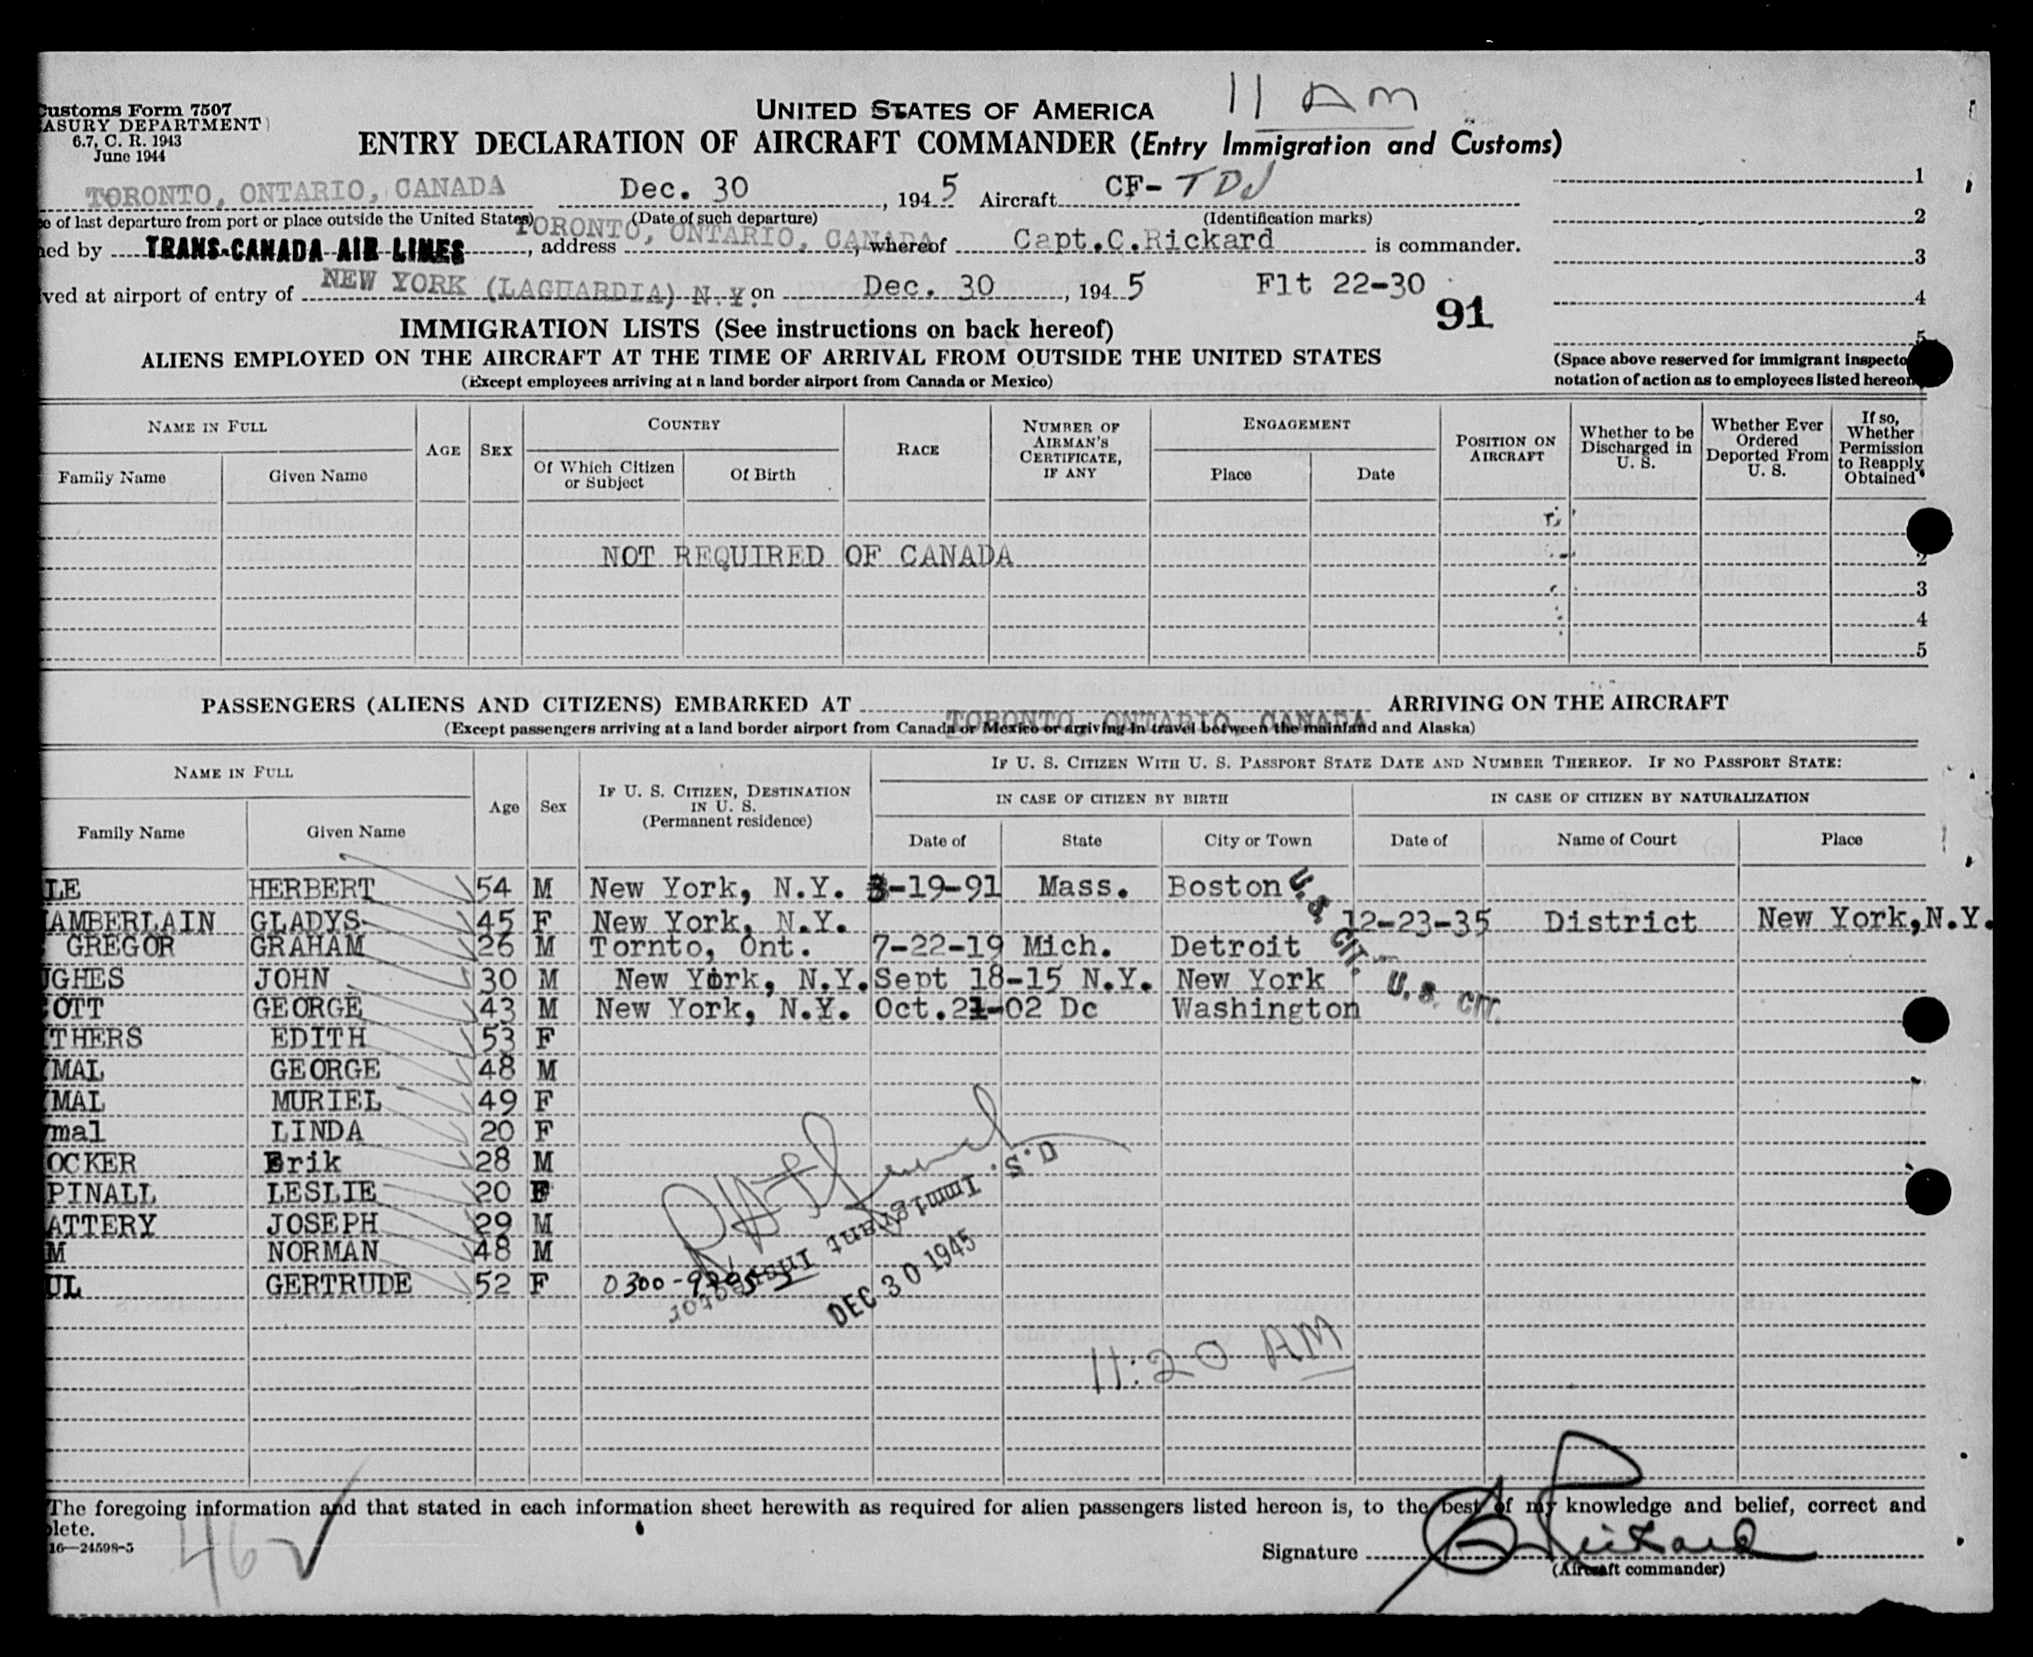 ustoms Form 7507
ASURY DEPARTMENT
6.7, C. R. 1943
June 1944
UNITED STATES OF AMERICA
11 AM
ENTRY DECLARATION OF AIRCRAFT COMMANDER (Entry Immigration and Customs)
TORONTO, ONTARIO, CANADA Dec. 30, 1945 Aircraft CF-TDJ
e of last departure from port or place outside the United States) (Date of such departure) (Identification marks)
ned by TRANS-CANADA AIR LINES, address TORONTO, ONTARIO, CANADA, whereof Capt.C.Rickard is commander.
ved at airport of entry of NEW YORK (LAGUARDIA) N.Y. on Dec. 30, 1945 Flt 22-30
91
1
2
3
4
5
(Space above reserved for immigrant inspecto
notation of action as to employees listed hereon
IMMIGRATION LISTS (See instructions on back hereof)
ALIENS EMPLOYED ON THE AIRCRAFT AT THE TIME OF ARRIVAL FROM OUTSIDE THE UNITED STATES
(Except employees arriving at a land border airport from Canada or Mexico)
NAME IN FULL
Family Name Given Name
AGE SEX
COUNTRY
Of Which Citizen or Subject Of Birth
RACE
NUMBER OF AIRMAN'S CERTIFICATE, IF ANY
ENGAGEMENT
Place Date
POSITION ON AIRCRAFT
Whether to be Discharged in U. S.
Whether Ever Ordered Deported From U. S.
If so, Whether Permission to Reapply Obtained
NOT REQUIRED OF CANADA
2
3
4
5
PASSENGERS (ALIENS AND CITIZENS) EMBARKED AT TORONTO, ONTARIO, CANADA ARRIVING ON THE AIRCRAFT
(Except passengers arriving at a land border airport from Canada or Mexico or arriving in travel between the mainland and Alaska)
NAME IN FULL
Family Name Given Name
Age Sex
IF U. S. CITIZEN, DESTINATION IN U. S. (Permanent residence)
IF U. S. CITIZEN WITH U. S. PASSPORT STATE DATE AND NUMBER THEREOF. IF NO PASSPORT STATE:
IN CASE OF CITIZEN BY BIRTH IN CASE OF CITIZEN BY NATURALIZATION
Date of State City or Town Date of Name of Court Place
LE HERBERT 54 M New York, N.Y. 3-19-91 Mass. Boston
AMBERLAIN GLADYS 45 F New York, N.Y. 12-23-35 District New York,N.Y.
GREGOR GRAHAM 26 M Tornto, Ont. 7-22-19 Mich. Detroit
GHES JOHN 30 M New York, N.Y. Sept 18-15 N.Y. New York
OTT GEORGE 43 M New York, N.Y. Oct.21-02 Dc Washington
U.S. CIT.
U.S. CIT.
THERS EDITH 53 F
MAL GEORGE 48 M
MAL MURIEL 49 F
mal LINDA 20 F
OCKER Erik 28 M
PINALL LESLIE 20 F
ATTERY JOSEPH 29 M
M NORMAN 48 M
UL GERTRUDE 52 F
U.S. Immigrant Inspector
DEC 30 1945
11:20 AM
The foregoing information and that stated in each information sheet herewith as required for alien passengers listed hereon is, to the best of my knowledge and belief, correct and
lete.
16—24598-5
46
Signature C Rickard
(Aircraft commander)